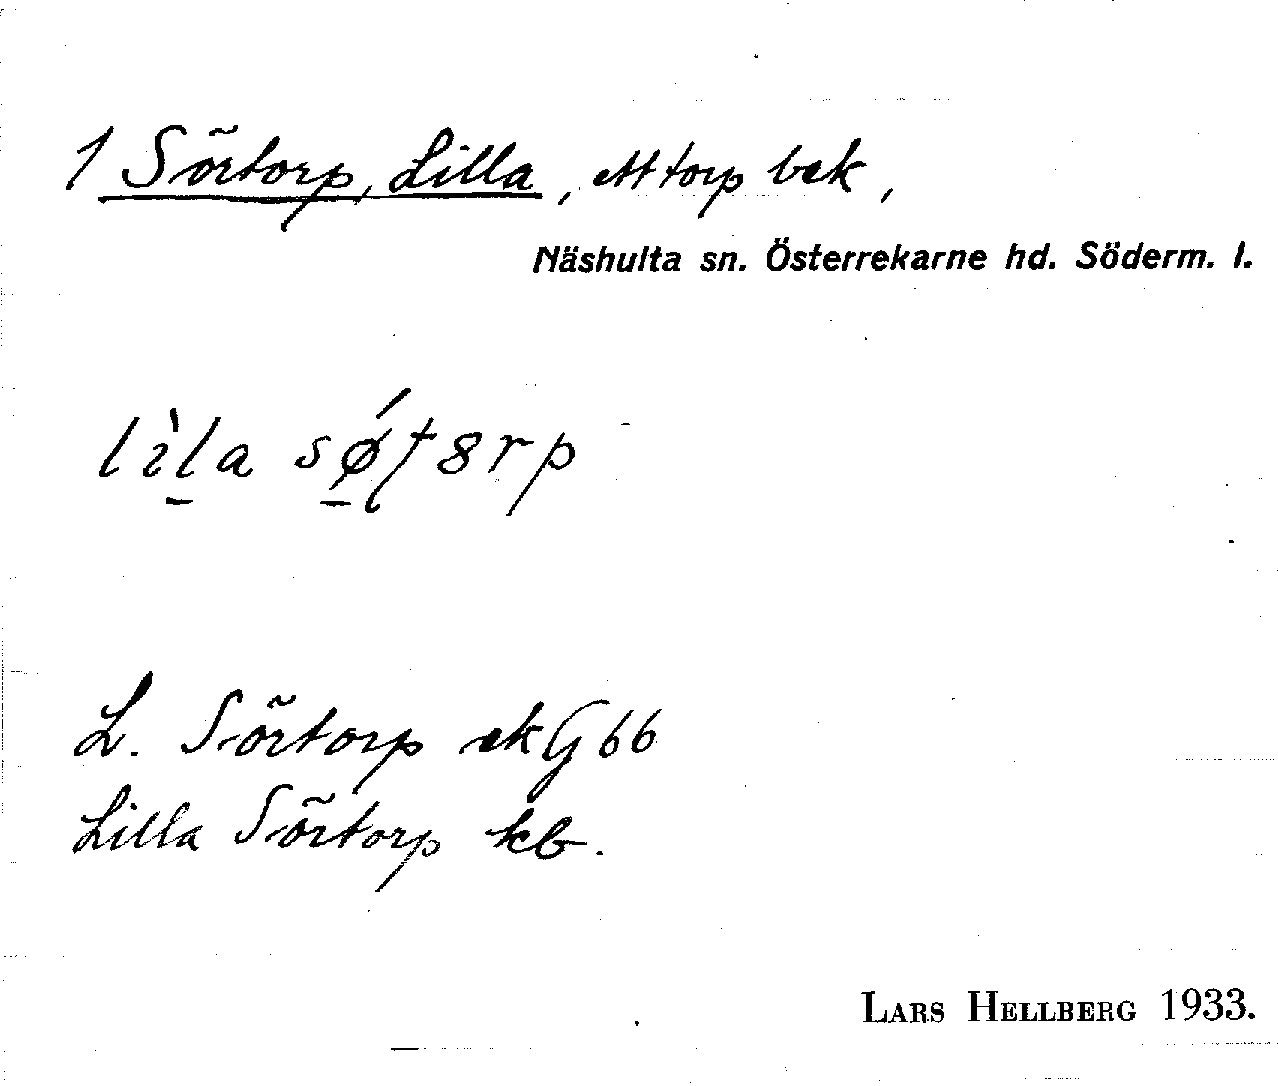 1 Sörtorp, Lilla, ett torp bek,
Näshulta sn. Österrekarne hd. Söderm. l.
lìla sǿt8rp
L. Sörtorp ek G 66
Lilla Sörtorp kb.
LARS HELLBERG 1933.